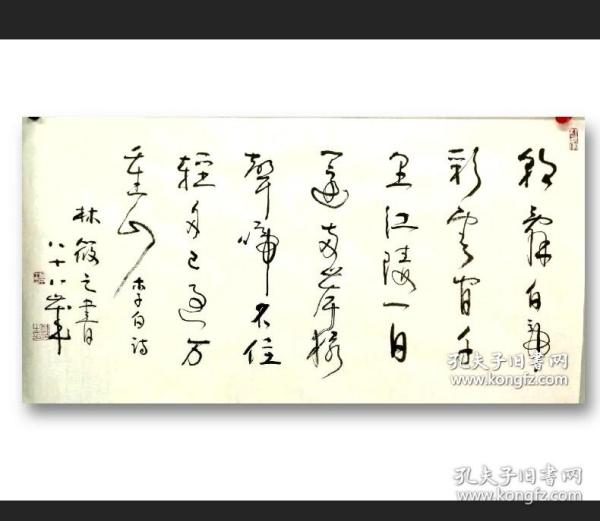 朝辭白帝
彩雲间千
里江陵一日
還两岸猿
聲啼不住
輕舟已過万
重山
李白诗
林筱之書
八十八歲
孔夫子旧书网
www.kongfz.com
孔夫子旧书网
www.kongfz.com